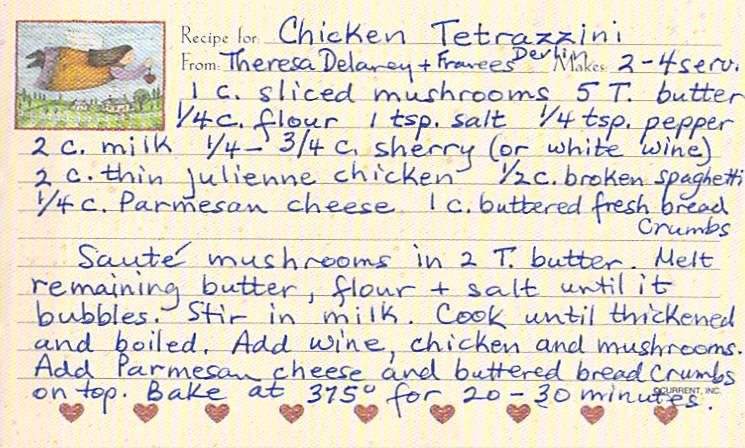 Recipe for: Chicken Tetrazzini
From: Theresa Delaney + Frances Devlin Makes: 2-4 serv.
1 c. sliced mushrooms 5 T. butter
1/4 c. flour 1 tsp. salt 1/4 tsp. pepper
2 c. milk 1/4 - 3/4 c. sherry (or white wine)
2 c. thin julienne chicken 1/2 c. broken spaghetti
1/4 c. Parmesan cheese 1 c. buttered fresh bread
Crumbs
Sauté mushrooms in 2 T. butter. Melt
remaining butter, flour + salt until it
bubbles. Stir in milk. Cook until thickened
and boiled. Add wine, chicken and mushrooms.
Add Parmesan cheese and buttered bread crumbs
on top. Bake at 375° for 20-30 minutes.
©CURRENT, INC.